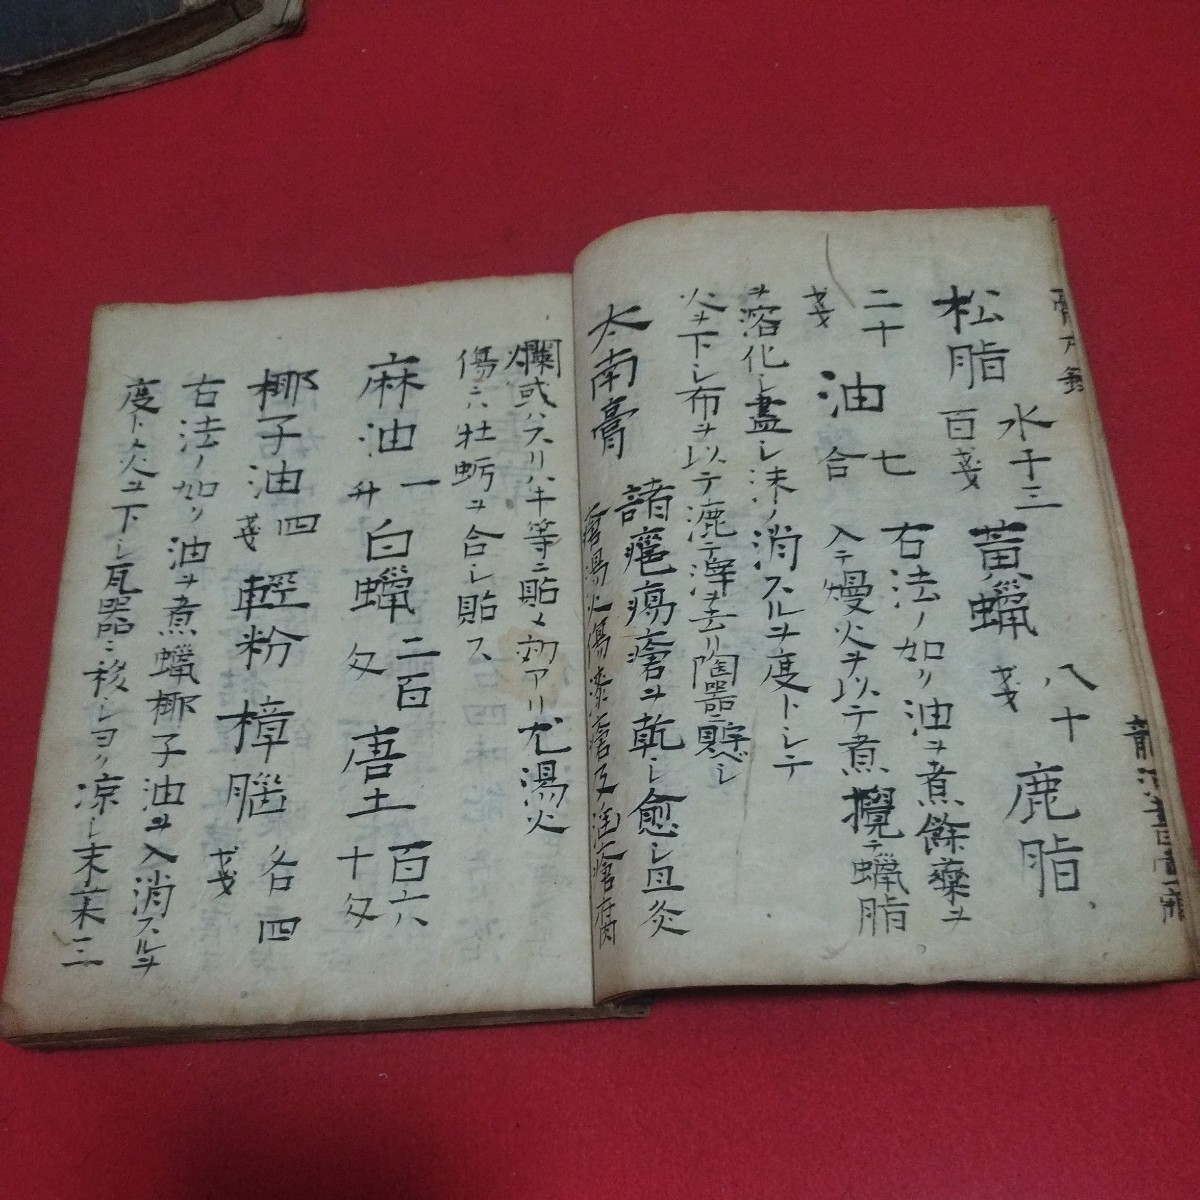 松脂 百戔 黄蠟 八十戔 鹿脂
二十戔 油 七合 右法ノ如ク油ヲ煮餘藥ヲ
入テ熳火ヲ以テ煮攪テ蠟脂
ヲ溶化シ盡シ沫ノ消スルヲ度トシテ
火ヲ下シ布ヲ以テ漉テ滓ヲ去リ陶器ニ貯ベシ
太南膏 諸瘡瘍瘡ヲ乾シ愈シ且灸
瘡湯火傷漆瘡及 瘡腐
爛或ハスリハキ等ニ貼メ効アリ尤湯火
傷ニハ牡蛎ヲ合シ貼ス
麻油 一升 白蠟 二百匁 唐土 百六十匁
椰子油 四戔 輕粉 樟腦 各四戔
右法ノ如ク油ヲ煮蠟椰子油ヲ入消スルヲ
度トメ火ヲ下シ瓦器ニ移シヨク凉シ末藥三